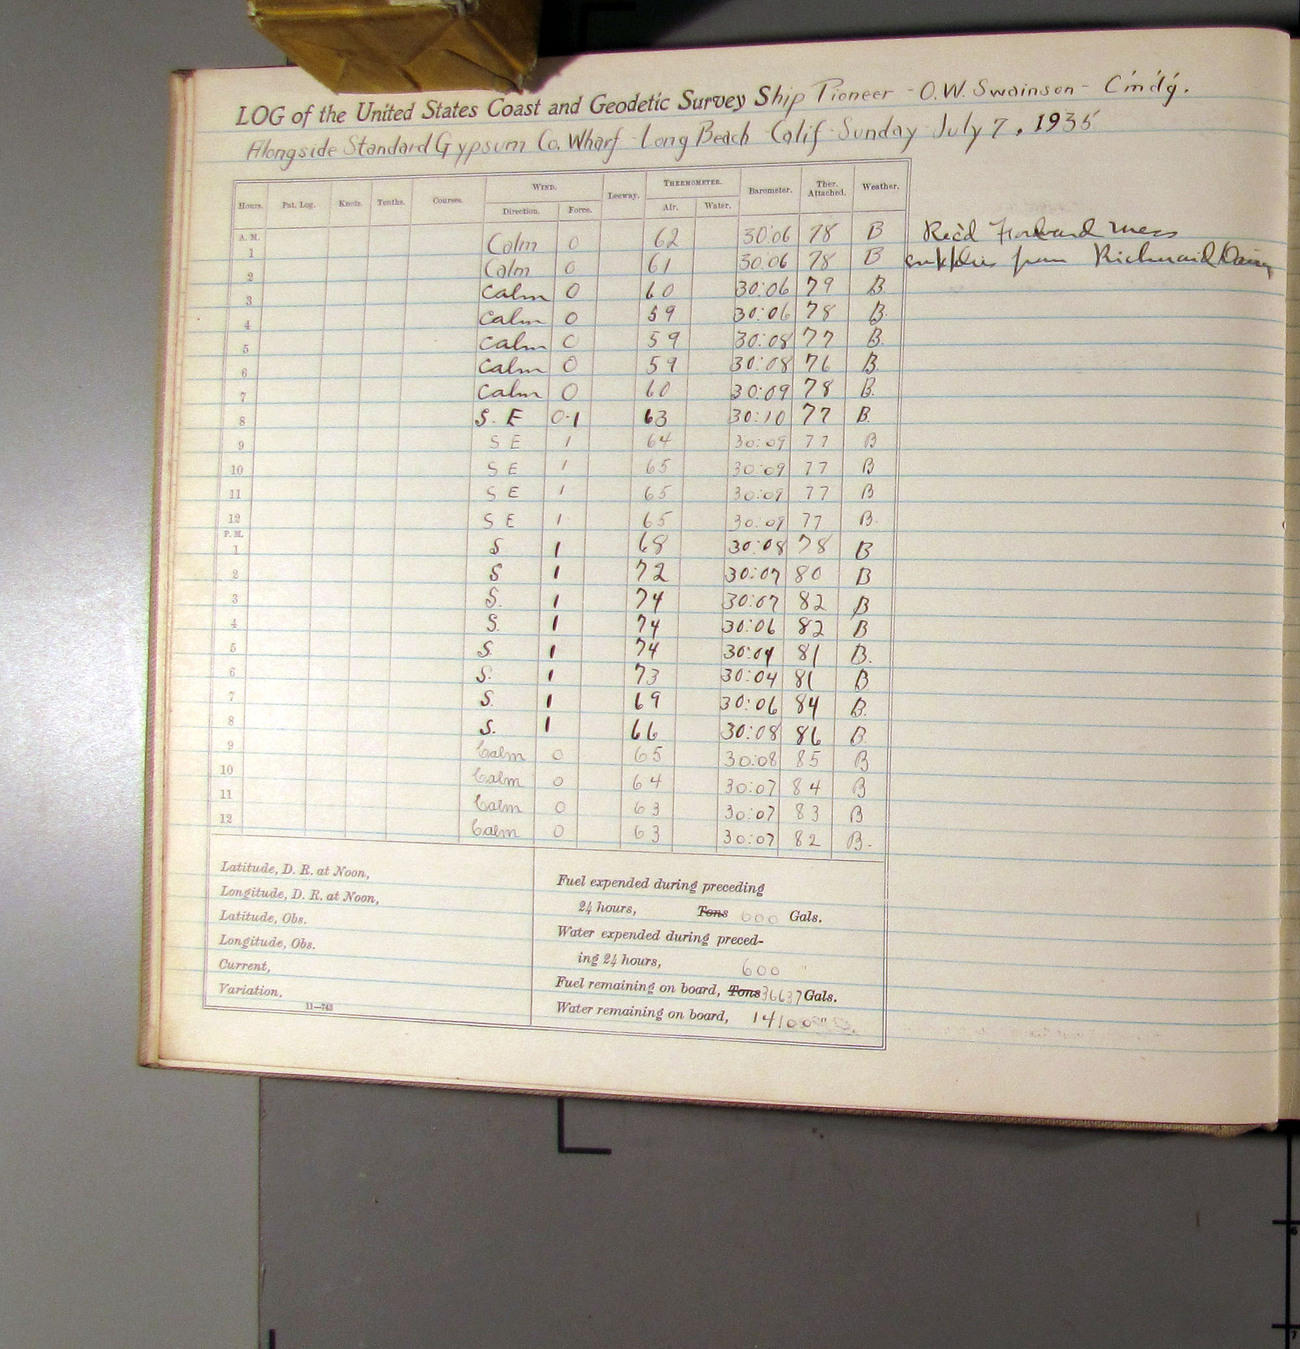 LOG of the United States Coast and Geodetic Survey Ship Pioneer - O.W. Swainson - Cm'd'g.
Alongside Standard Gypsum Co. Wharf - Long Beach - Calif - Sunday July 7, 1935
Hours. Pat. Log. Knots. Tenths. Courses. WIND. Leeway. THERMOMETER. Barometer. Ther. Attached. Weather.
Direction. Force. Air. Water.
A. M.
1 Calm 0 62 30:06 78 B Rec'd Forward Mess
2 Calm 0 61 30:06 78 B supplies from Dairy
3 Calm 0 60 30:06 79 B.
4 Calm 0 59 30:06 78 B.
5 Calm 0 59 30:08 77 B.
6 Calm 0 59 30:08 76 B.
7 Calm 0 60 30:09 78 B.
8 S. E 0-1 63 30:10 77 B.
9 S E 1 64 30:09 77 B
10 S E 1 65 30:09 77 B
11 S E 1 65 30:09 77 B
12 S E 1 65 30:09 77 B.
P. M.
1 S 1 68 30:08 78 B
2 S 1 72 30:07 80 B
3 S. 1 74 30:07 82 B
4 S. 1 74 30:06 82 B
5 S. 1 74 30:04 81 B.
6 S. 1 73 30:04 81 B
7 S. 1 69 30:06 84 B.
8 S. 1 66 30:08 86 B.
9 Calm 0 65 30:08 85 B
10 Calm 0 64 30:07 84 B
11 Calm 0 63 30:07 83 B
12 Calm 0 63 30:07 82 B.
Latitude, D. R. at Noon,
Longitude, D. R. at Noon,
Latitude, Obs.
Longitude, Obs.
Current,
Variation,
11—743
Fuel expended during preceding
24 hours, Tons 600 Gals.
Water expended during preced-
ing 24 hours, 600 "
Fuel remaining on board, Tons 36637 Gals.
Water remaining on board, 14100 "
6
7